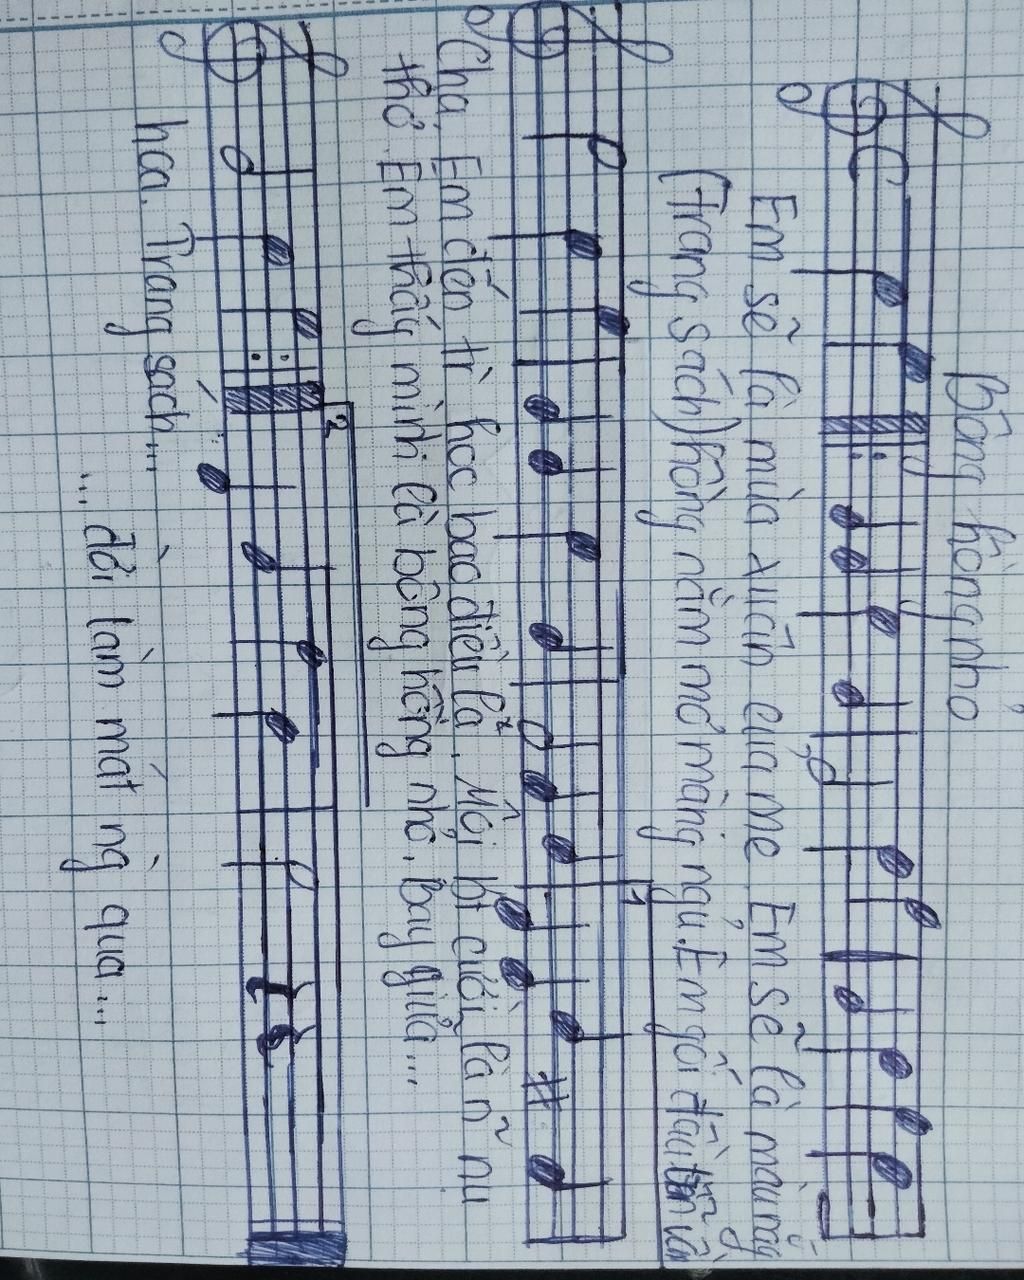 Bông hồng nhỏ
Em sẽ là mùa xuân của mẹ. Em sẽ là màu nắng
(Trang sách) hồng nằm mơ màng ngủ. Em gối đầu
1
Cha. Em đến trường học bao điều lạ. Môi biết cười là nụ
thơ. Em thấy mình là bông hồng nhỏ, bay giữa...
2
hoa. Trang sách...
... đời làm mát ngày qua...